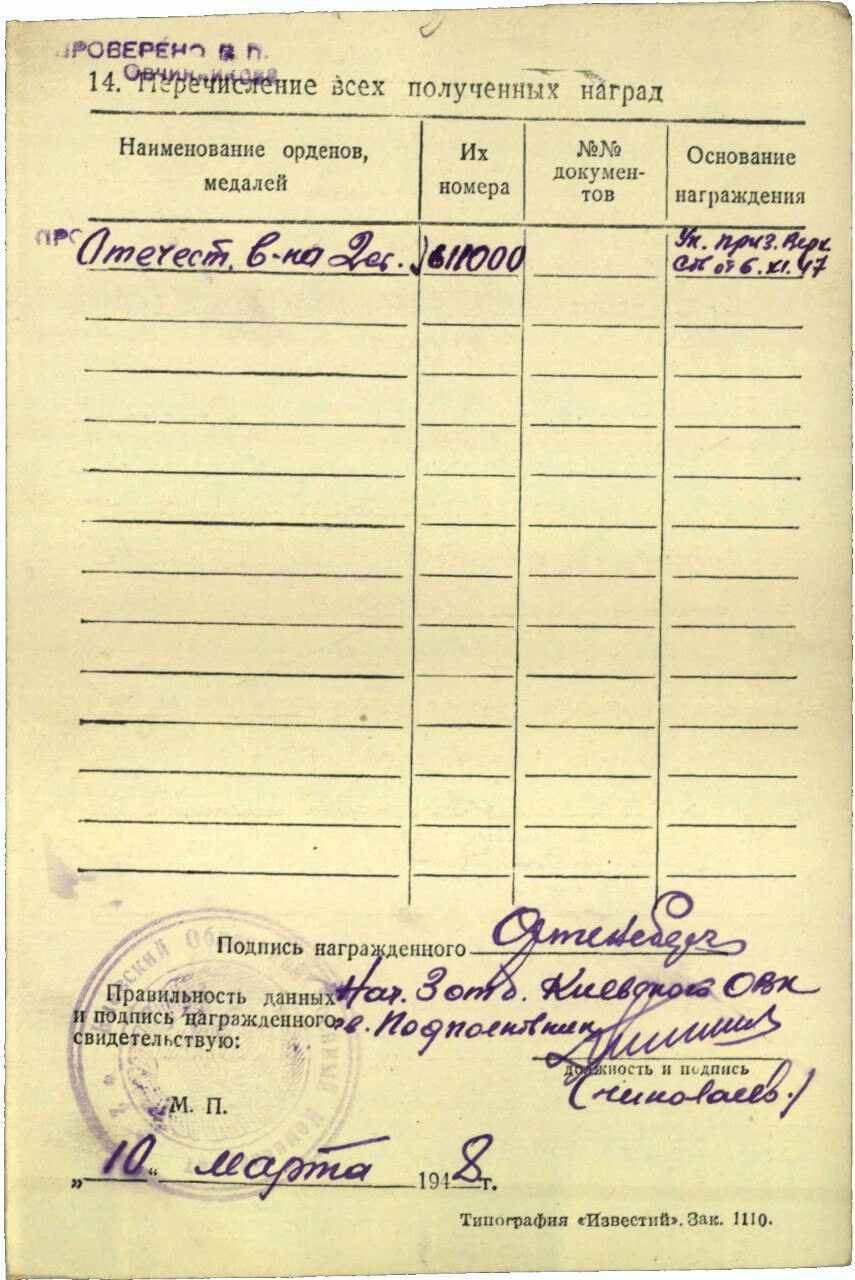 ПРОВЕРЕНО В П.
Овчинникова
14. Перечисление всех полученных наград
Наименование орденов, медалей
Их номера
№№ докумен-
тов
Основание награждения
ПРО
Отечест. в-на 2 ст.
611000
Ук. През. Верх
СС от 6.XI.47
Подпись награжденного
Правильность данных Нач. 3 отд. Киевского ОВК
и подпись награжденного гв. Подполковник
свидетельствую:
должность и подпись
(Николаев.)
М. П.
„10“ марта 1948 г.
Типография «Известий». Зак. 1110.